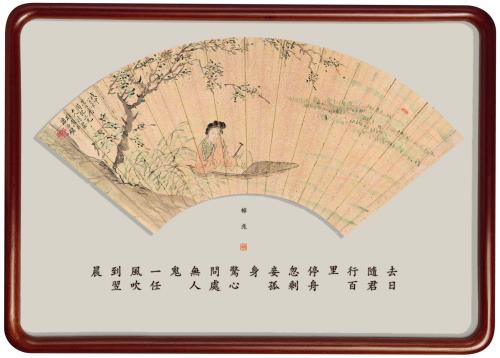 去日
隨君
行百
里
停舟
忽剩
妾孤
身
驚心
問處
無人
鬼
一任
風吹
到翌
晨